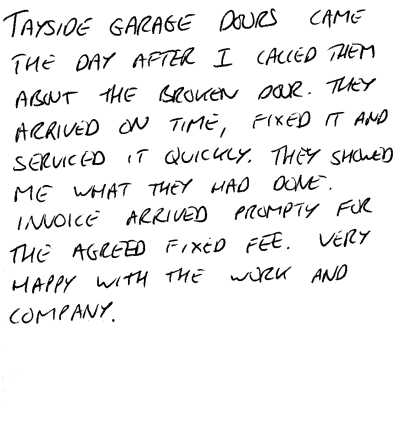 TAYSIDE GARAGE DOORS CAME
THE DAY AFTER I CALLED THEM
ABOUT THE BROKEN DOOR. THEY
ARRIVED ON TIME, FIXED IT AND
SERVICED IT QUICKLY. THEY SHOWED
ME WHAT THEY HAD DONE.
INVOICE ARRIVED PROMPTY FOR
THE AGREED FIXED FEE. VERY
HAPPY WITH THE WORK AND
COMPANY.